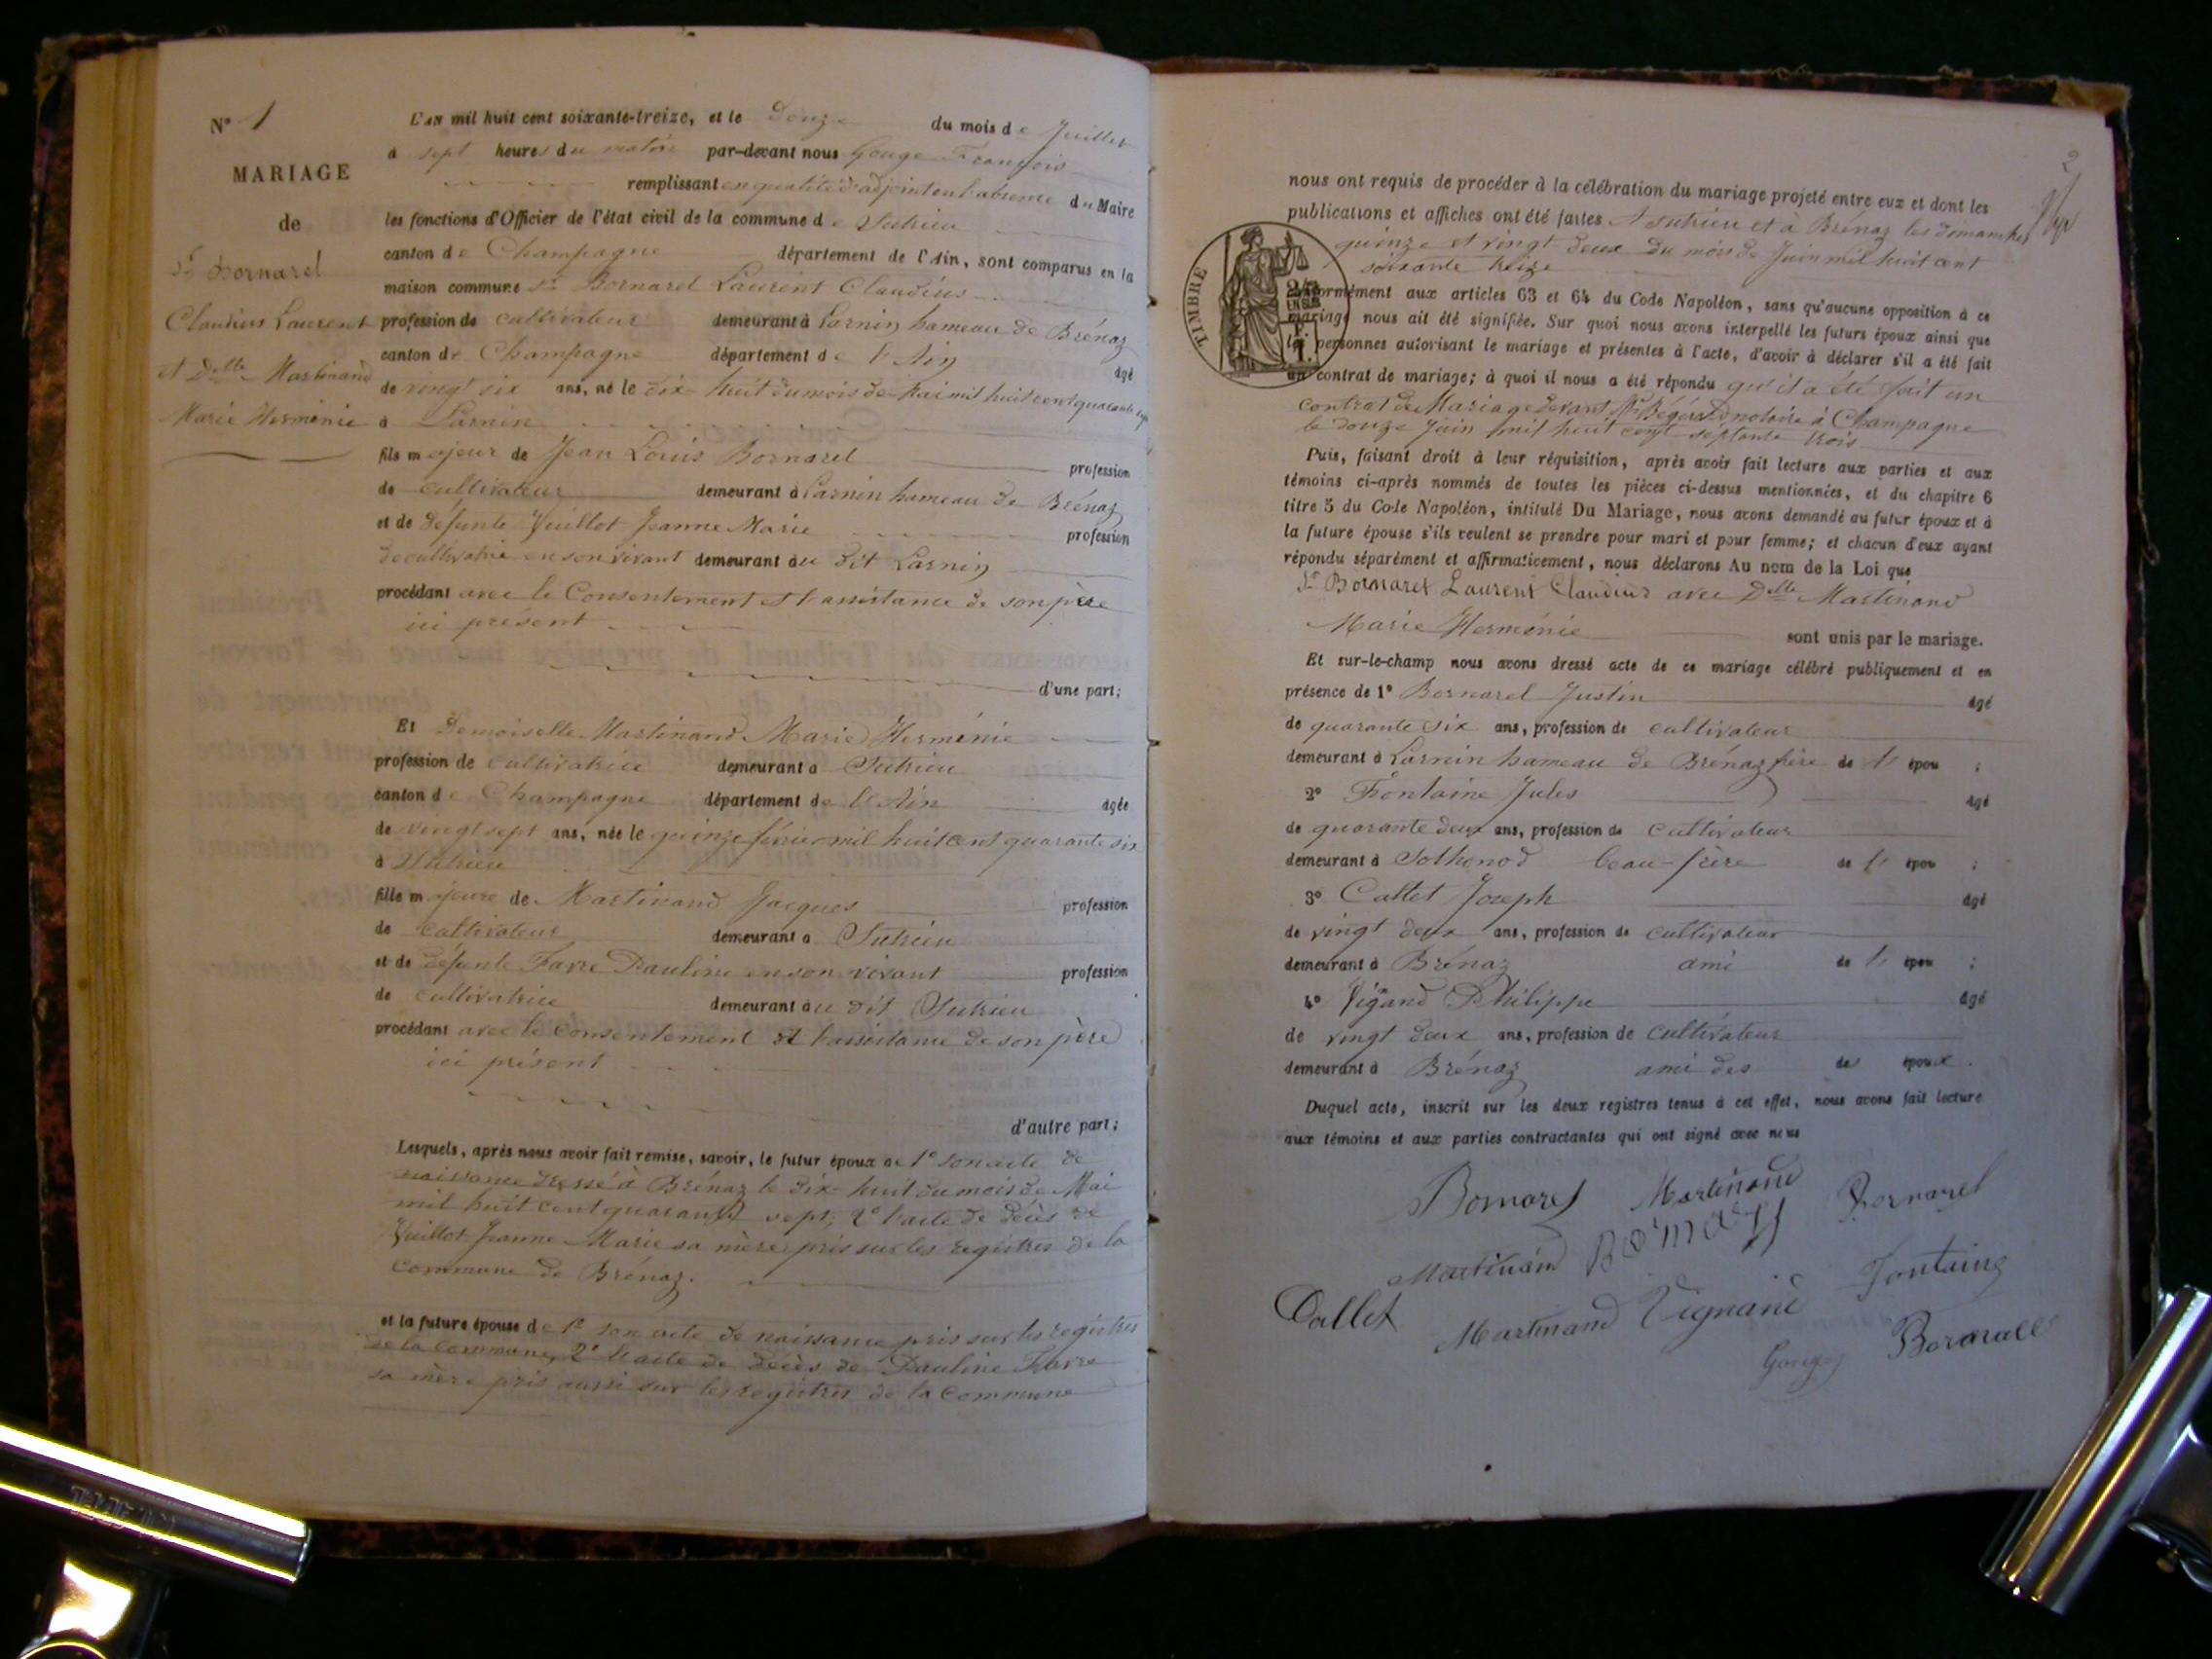 N° 1
MARIAGE
de
Sr Bornarel
Claudius Laurent
et Delle Martinand
Marie Herménie
L'AN mil huit cent soixante-treize, et le Douze du mois de Juillet
à sept heures du matin par-devant nous Gouge François
remplissant en qualité d'adjoint en l'absence du Maire
les fonctions d'Officier de l'état civil de la commune de Sutrieu
canton de Champagne département de l'Ain, sont comparus en la
maison commune Sr Bornarel Laurent Claudius
profession de cultivateur demeurant à Larnin hameau de Brénaz
canton de Champagne département de l'Ain âgé
de vingt six ans, né le dix-huit du mois de Mai mil huit cent quarante sept
à Larnin
fils majeur de Jean Louis Bornarel profession
de cultivateur demeurant à Larnin hameau de Brénaz
et de défunte Vuillot Jeanne Marie profession
de cultivatrice en son vivant demeurant au dit Larnin
procédant avec le Consentement et l'assistance de son père
ici présent
d'une part;
Et Demoiselle Martinand Marie Herménie
profession de cultivatrice demeurant à Sutrieu
canton de Champagne département de l'Ain âgée
de vingt sept ans, née le quinze février mil huit cent quarante six
à Sutrieu
fille majeure de Martinand Jacques profession
de cultivateur demeurant à Sutrieu
et de défunte Favre Pauline en son vivant profession
de cultivatrice demeurant au dit Sutrieu
procédant avec le Consentement et l'assistance de son père
ici présent
d'autre part;
Lesquels, après nous avoir fait remise, savoir, le futur époux de 1° son acte de
naissance dressé à Brénaz le dix-huit du mois de Mai
mil huit cent quarante sept; 2° l'acte de décès de
Vuillot Jeanne Marie sa mère pris sur les registres de la
commune de Brénaz.
et la future épouse de 1° son acte de naissance pris sur les registres
de la commune, 2° l'acte de décès de Pauline Favre
sa mère pris aussi sur les registres de la Commune
2
nous ont requis de procéder à la célébration du mariage projeté entre eux et dont les
publications et affiches ont été faites A Sutrieu et à Brénaz les dimanches
quinze et vingt deux du mois de Juin mil huit cent
soixante treize
TIMBRE
conformément aux articles 63 et 64 du Code Napoléon, sans qu'aucune opposition à ce
mariage nous ait été signifiée. Sur quoi nous avons interpellé les futurs époux ainsi que
les personnes autorisant le mariage et présentes à l'acte, d'avoir à déclarer s'il a été fait
un contrat de mariage; à quoi il nous a été répondu qu'il a été fait un
contrat de Mariage devant Me notaire à Champagne
le douze Juin mil huit cent septante trois
Puis, faisant droit à leur réquisition, après avoir fait lecture aux parties et aux
témoins ci-après nommés de toutes les pièces ci-dessus mentionnées, et du chapitre 6
titre 5 du Code Napoléon, intitulé Du Mariage, nous avons demandé au futur époux et à
la future épouse s'ils veulent se prendre pour mari et pour femme; et chacun d'eux ayant
répondu séparément et affirmativement, nous déclarons Au nom de la Loi que
Sr Bornarel Laurent Claudius avec Delle Martinand
Marie Herménie sont unis par le mariage.
Et sur-le-champ nous avons dressé acte de ce mariage célébré publiquement et en
présence de 1° Bornarel Justin âgé
de quarante six ans, profession de cultivateur
demeurant à Larnin hameau de Brénaz frère de l' épou ;
2° Fontaine Jules âgé
de quarante deux ans, profession de cultivateur
demeurant à Sothonod beau-frère de l' épou ;
3° Callet Joseph âgé
de vingt deux ans, profession de cultivateur
demeurant à Brénaz ami de l' épou ;
4° Vignand Philippe âgé
de vingt deux ans, profession de cultivateur
demeurant à Brénaz ami des des époux.
Duquel acte, inscrit sur les deux registres tenus à cet effet, nous avons fait lecture
aux témoins et aux parties contractantes qui ont signé avec nous
Bornarel Martinand Bornarel
Martinand Bornarel Fontaine
Callet Martinand Vignand
Gouge Bornarel